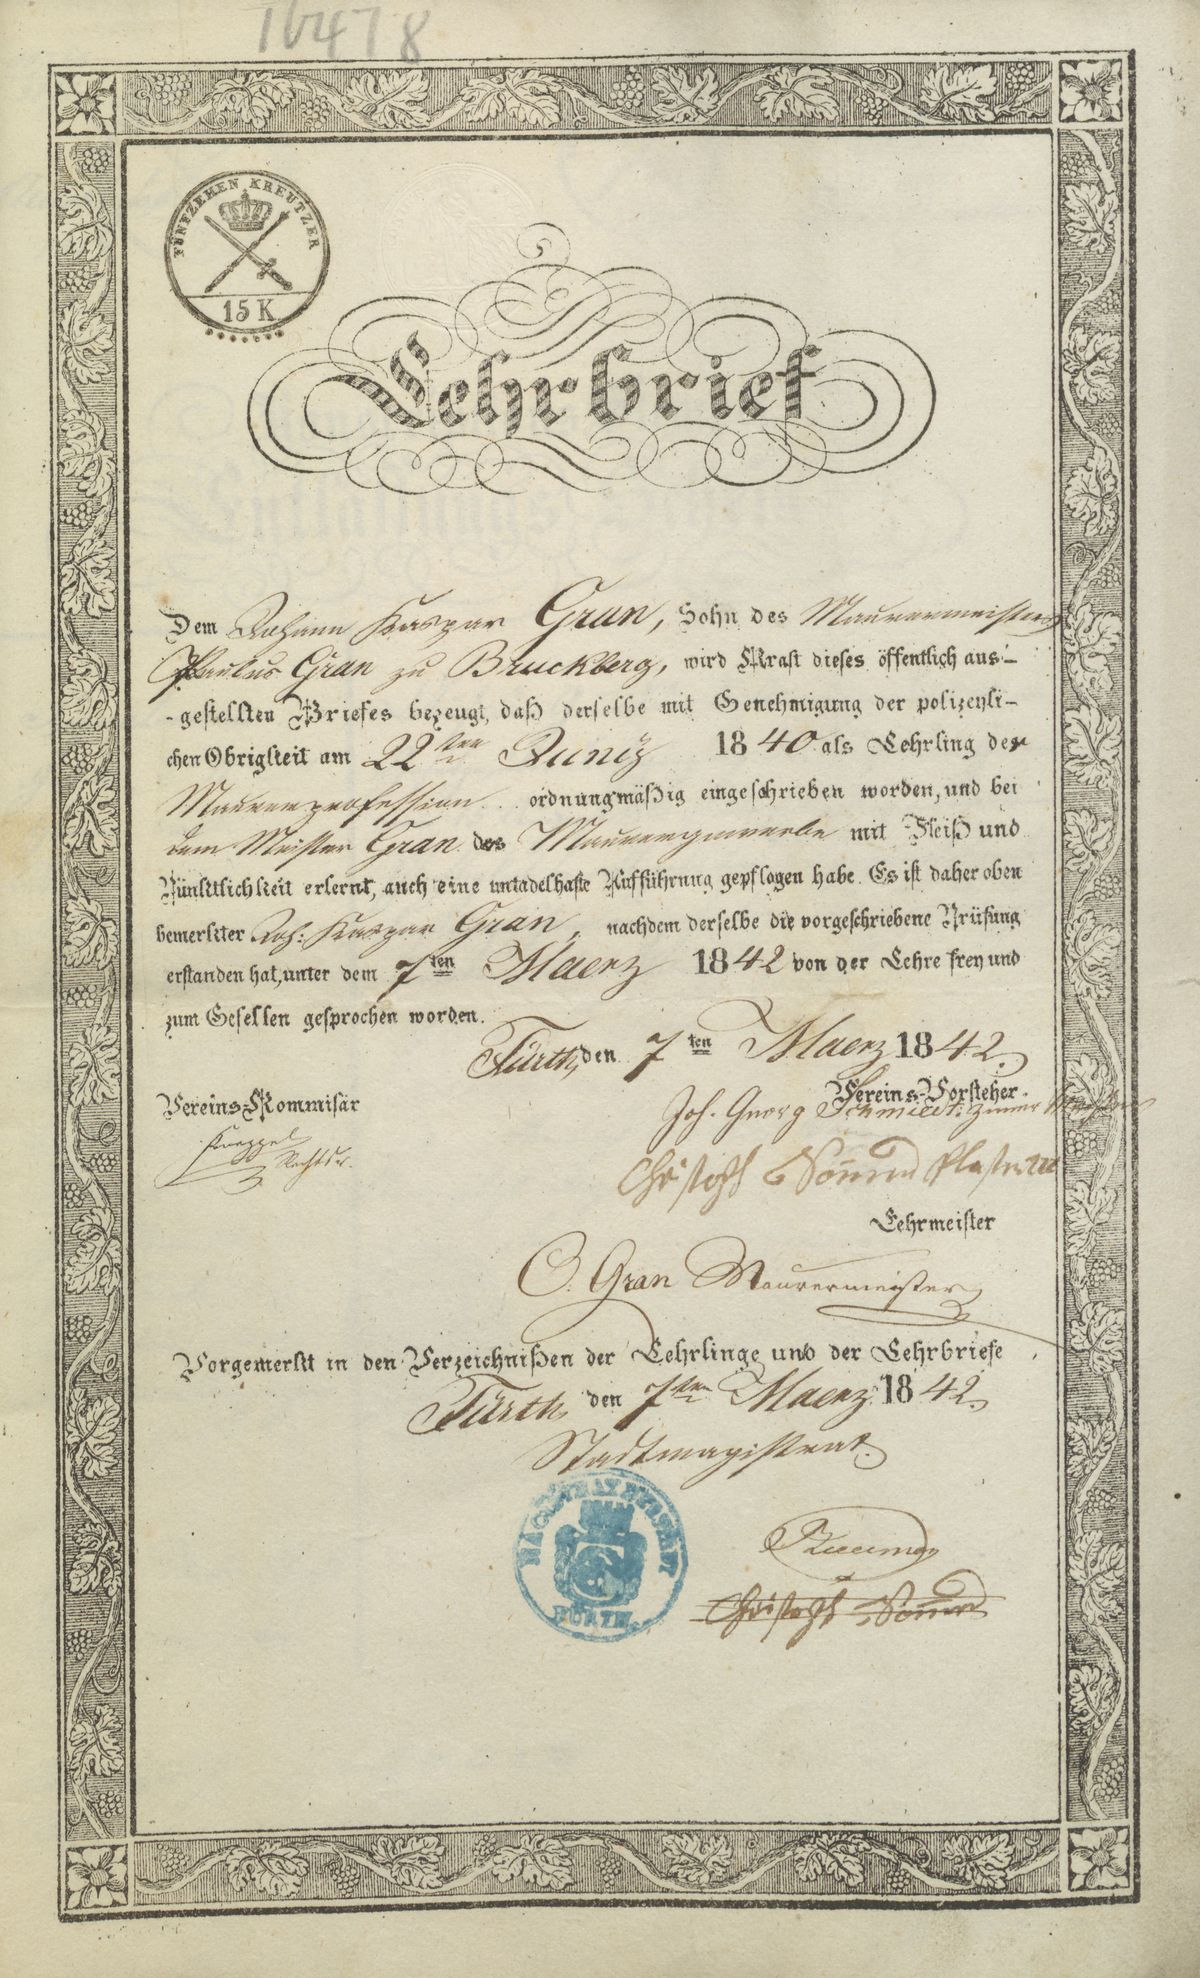 16478
FÜNFZEHEN KREUTZER
15 K
Lehrbrief
Dem Johann Kaspar Gran, Sohn des Maurermeisters
Paulus Gran zu Bruckberg, wird Kraft dieses öffentlich aus-
-gestellten Briefes bezeugt, daß derselbe mit Genehmigung der polizeyli-
chen Obrigkeit am 22ten Juniz 1840 als Lehrling der
Maurerprofession ordnungmäßig eingeschrieben worden, und bei
dem Meister Gran des Maurergewerbe mit Fleiß und
Pünktlichkeit erlernt, auch eine untadelhafte Aufführung gepflogen habe. Es ist daher oben
bemerkter Joh: Kaspar Gran, nachdem derselbe die vorgeschriebene Prüfung
erstanden hat, unter dem 7ten Maerz 1842 von der Lehre frey und
zum Gesellen gesprochen worden.
Fürth, den 7ten Maerz 1842.
Vereins-Kommisär
Vereins-Vorsteher.
Joh. Georg Schmidt. Zimmer Meister
Christoph
Lehrmeister
Gran Maurermeister
Vorgemerkt in den Verzeichnißen der Lehrlinge und der Lehrbriefe
Fürth, den 7ten Maerz 1842.
Stadtmagistrat.
FÜRTH.
Christoph